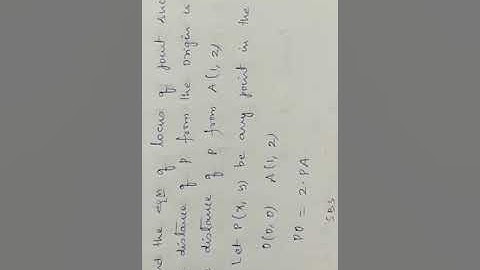 nd the eqn of locus of point suc
distance of P from the origin is
distance of P from A(1, 2)
Let P(x, y) be any point in the
O(0, 0) A(1, 2)
PO = 2·PA
SBS